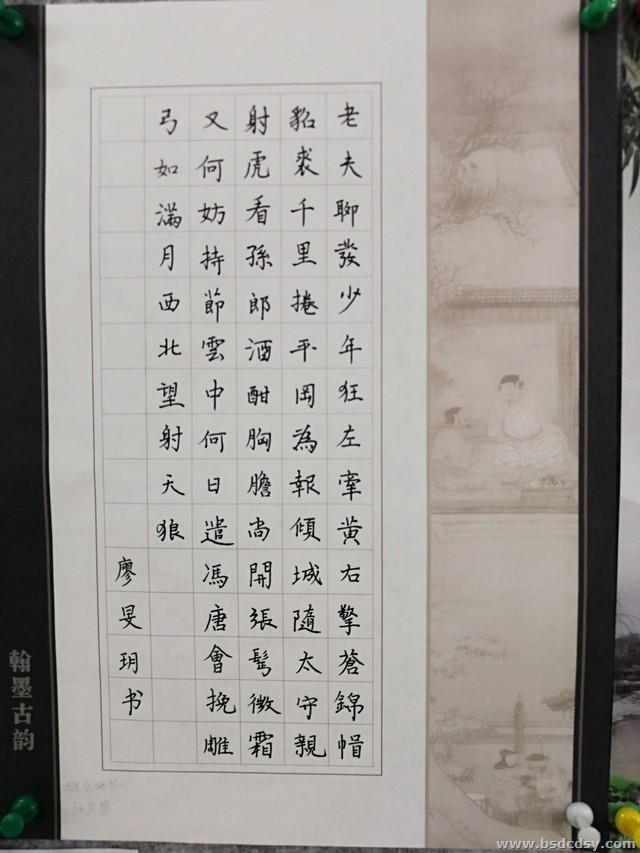 老夫聊發少年狂左牽黃右擎蒼錦帽
貂裘千里捲平岡為報傾城隨太守親
射虎看孫郎酒酣胸膽尚開張鬢微霜
又何妨持節雲中何日遣馮唐會挽雕
弓如滿月西北望射天狼
廖旻玥书
翰墨古韵
www.bsdcdsy.com